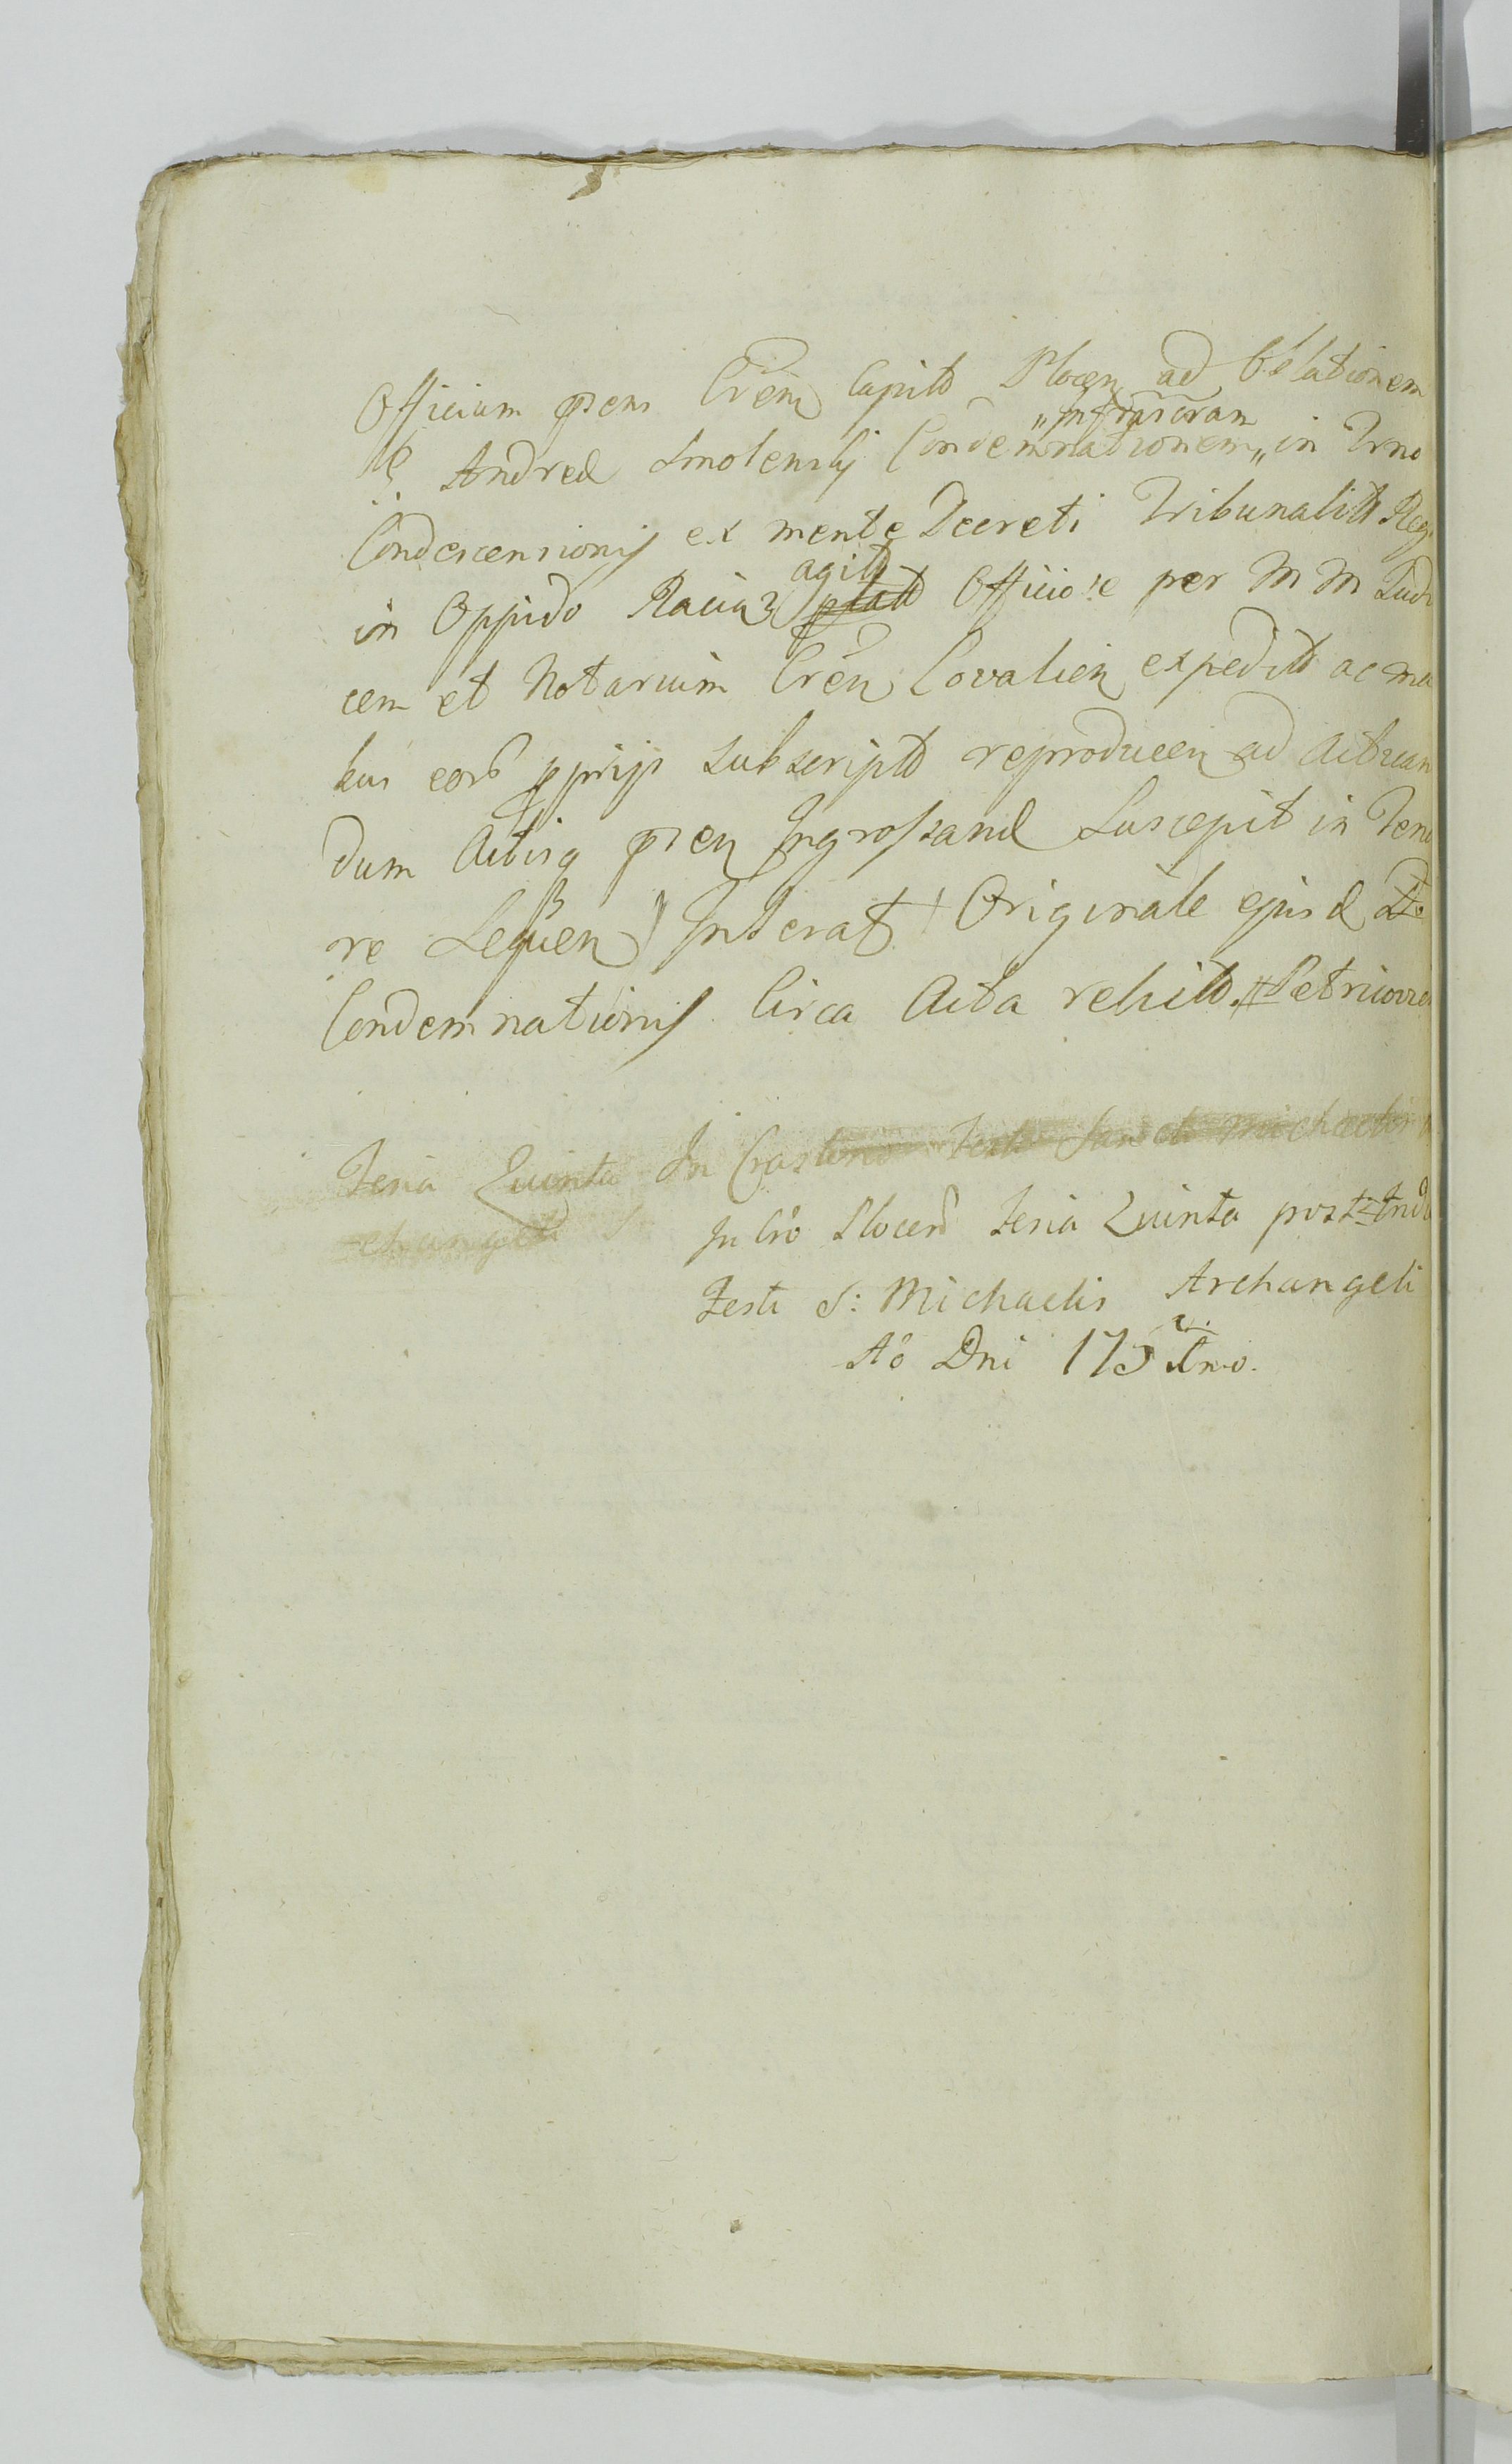 Officium præns Crên Capitł Plocen ad Oblationem
G Andreæ Smolensky Condemnationem „infrascram„ in Trno
Condescensionis ex mente Decreti Tribunalitt Reg
in Oppido Raciąz agitł Officiose per M M Judi
cem et Notarium Crên Covalien expeditł ac ma
bus eorʳ pprijs subscriptł reproducen ad Actican
dum Actisq præn Ingrossand Suscepit in Teno
re Sequen Inserat Originale ejusd
Condemnationis Circa Acta relictł. Petricovien
Feria Quinta In Crastino Festi Sancti Michaelis
In Cro Plocen Feria Quinta post
Festi S: Michaelis Archangeli
Aô Dni 175